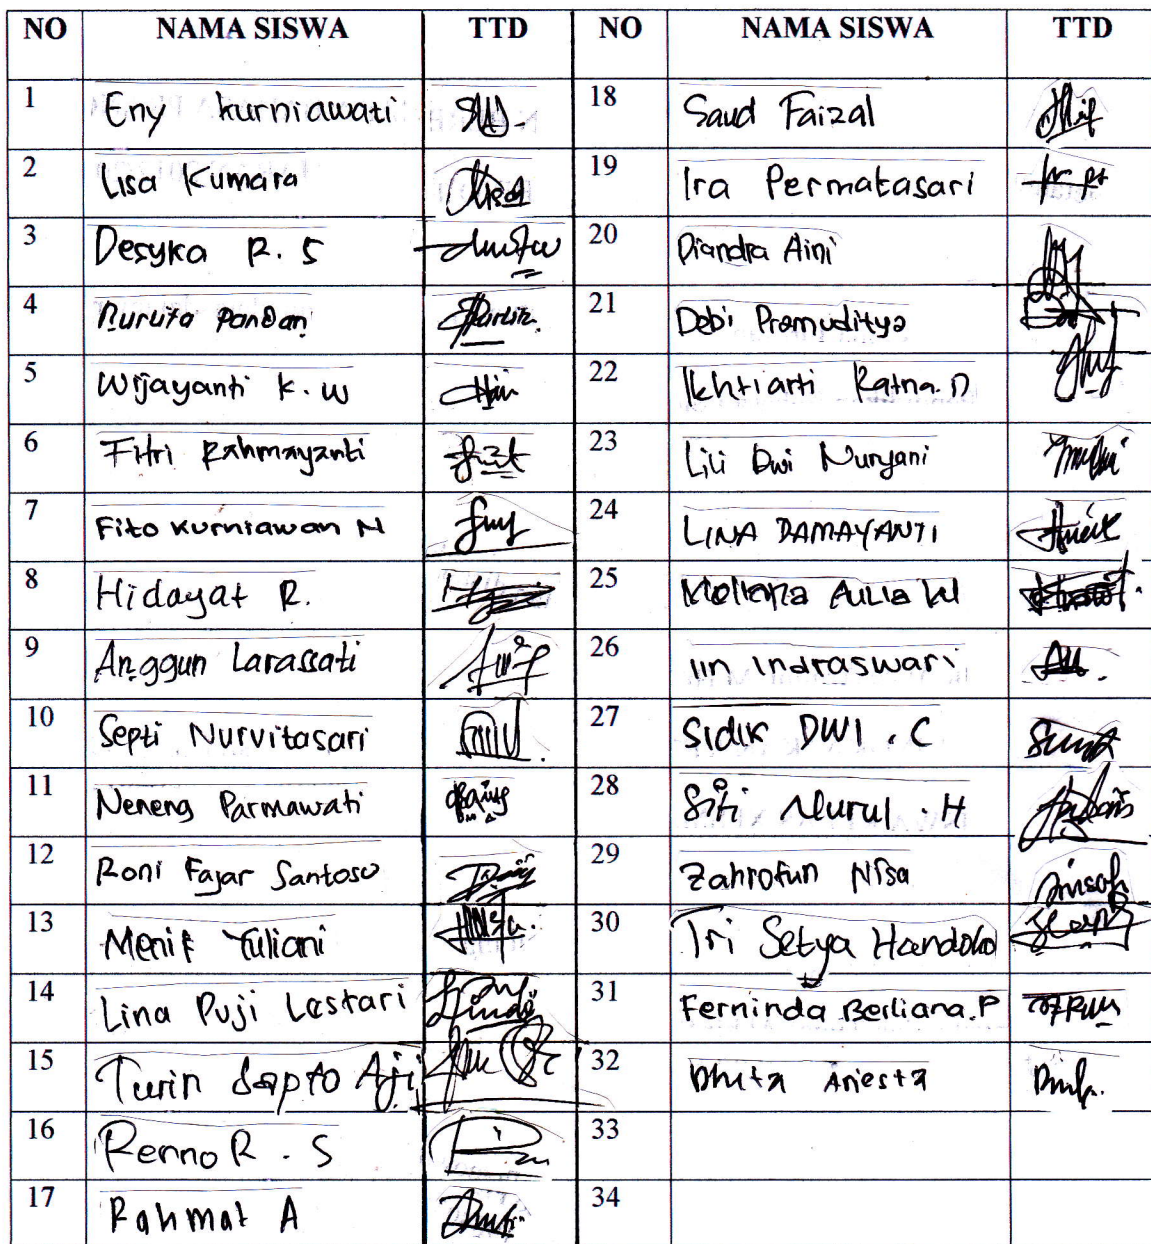 NO NAMA SISWA TTD NO NAMA SISWA TTD
1 Eny kurniawati 18 Saud Faizal
2 Lisa Kumara 19 Ira Permatasari
3 Desyka R. S 20 Diandra Aini
4 Nurvita Pandan 21 Debi Pramuditya
5 Wijayanti K. W 22 Ikhtiarti Ratna. D
6 Fitri Rahmayanti 23 Lili Dwi Nuryani
7 Fito Kurniawan N 24 LINA DAMAYANTI
8 Hidayat R. 25 Aulia W
9 Anggun Larassati 26 iin indraswari
10 Septi Nurvitasari 27 Sidik DWI . C
11 Neneng Parmawati 28 Siti Nurul . H
12 Roni Fajar Santoso 29 Zahrotun Nisa
13 Menik Yuliani 30 Tri Setya Handoko
14 Lina Puji Lestari 31 Ferninda Berliana. P
15 Turin Sapto Aji 32 Dhita Anesta
16 Renno R . S 33
17 Rahmat A 34